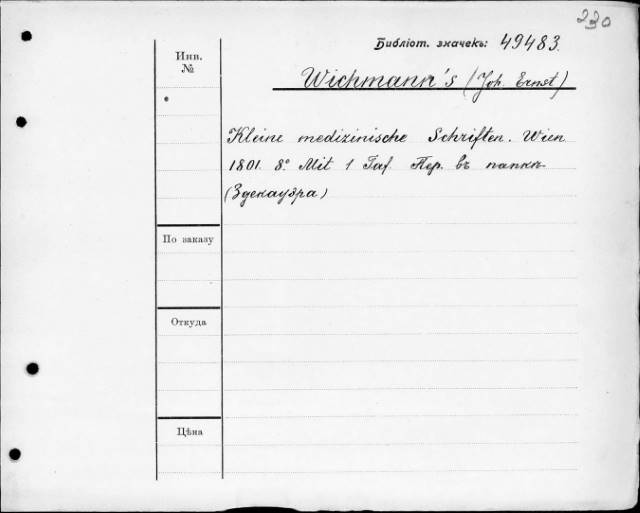 230
Библіот. значекъ: 49483.
Инв. №
Wichmann's (Joh. Ernst)
Kleine medizinische Schriften. Wien
1801. 8° Mit 1 Taf. Пер. въ папкѣ
(Здекауэра)
По заказу
Откуда
Цѣна